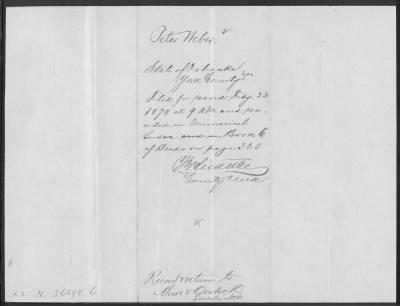 Peter Weber.
State of Nebraska
York County ss
Filed for record Feby. 23
1878 at 9 A.M. and re-
corded in Numerical
Index and in Book 6
of Deeds on page 365
County Clerk
Record & return to
Lincoln Neb.